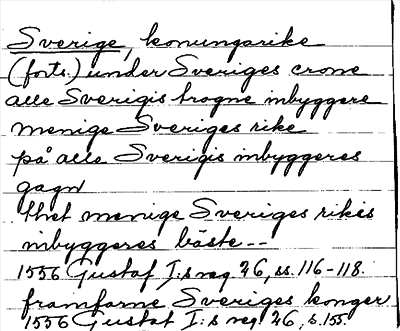 Sverige, konungarike
(forts.) under Sveriges crone
alle Sverigis trogne inbyggere
menige Sveriges rike
på alle Sverigis inbyggeres
gagn
thet menige Sveriges rikis
inbyggeres bäste--
1556 Gustaf I:s reg 26, ss. 116-118.
framfarne Sveriges konger
1556 Gustaf I:s reg 26, s. 155